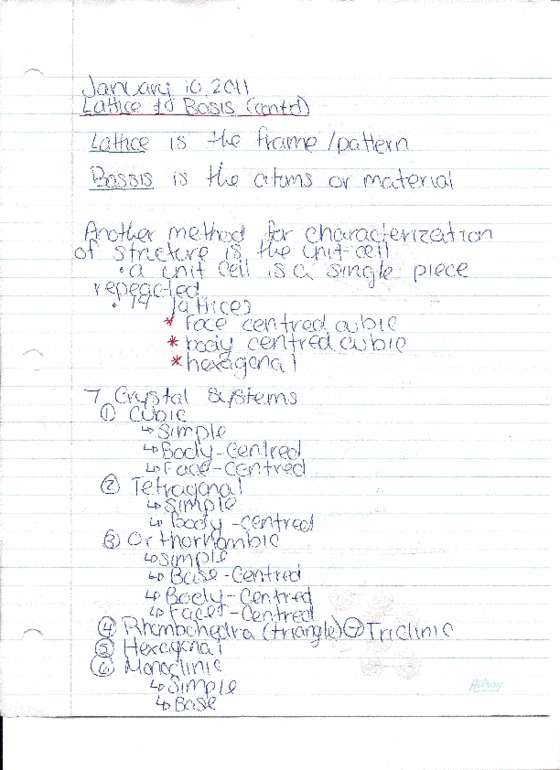 January 10, 2011
Lattice & Basis (contd)
Lattice is the frame/pattern
Bassis is the atoms or material
Another method for characterization
of structure is the unit cell
• a unit cell is a single piece
repeacted
• 14 lattices
* face centred cubic
* body centred cubic
* hexagonal
7 Crystal Systems
① Cubic
↳ Simple
↳ Body-Centred
↳ Face-Centred
② Tetragonal
↳ Simple
↳ Body-centred
③ Orthorhombic
↳ simple
↳ Base-Centred
↳ Body-Centred
↳ Facet-Centred
④ Rhombohedra (triangle) ⑦ Triclinic
⑤ Hexagonal
⑥ Monoclinic
↳ Simple
↳ Base
Hilroy